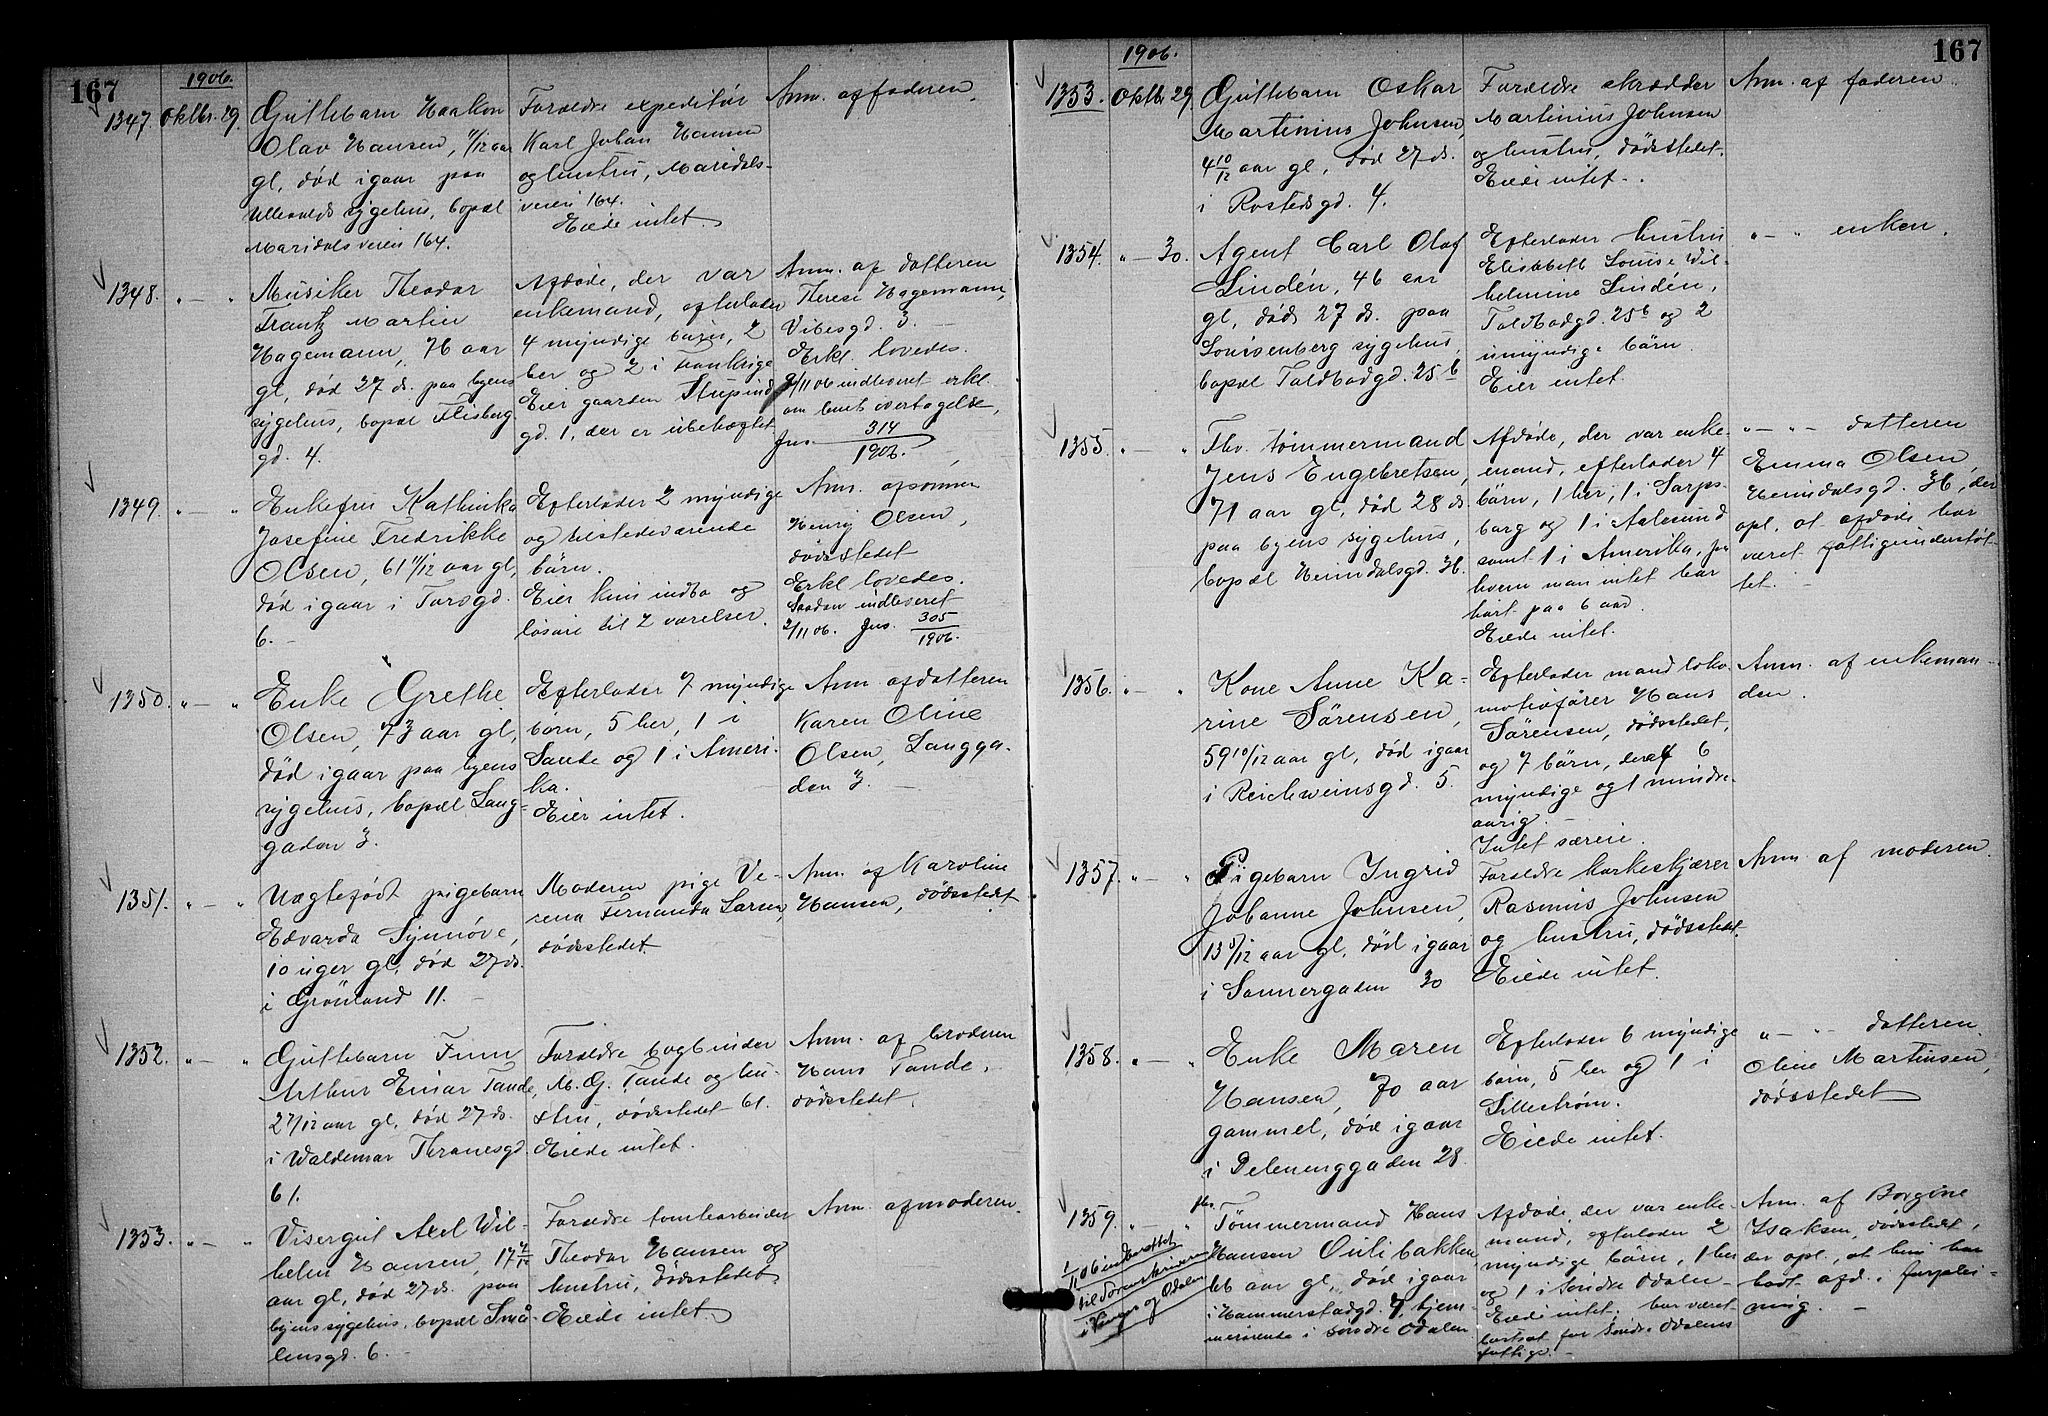 167
1906.
1347. Oktbr. 29.
Guttebarn Haakon
Olav Hansen, 11/12 aar
gl, død igaar paa
Ullevolds sygehus, bopæl
Maridalsveien 164.
Forældre expeditør
Karl Johan Hansen
og hustru, Maridals-
veien 164.
Eiede intet.
Anm. af faderen.
1348. " — "
Musiker Theodor
Frantz Martin
Hagemann, 76 aar
gl, død 27 ds. paa byens
sygehus, bopæl Flisberg
gd. 4.
Afdøde, der var
enkemand, efterlader
4 myndige børn, 2
her og 2 i Frankrige
Eier gaarden Stupind
gd. 1, der er ubehæftet.
Anm. af datteren
Therese Hagemann,
Vibesgd. 3. —
Erkl. lovedes.
9/11 06 indleveret erkl.
om boets overtagelse,
Jns. 314
1906.
1349. " — "
Enkefru Kathinka
Josefine Fredrikke
Olsen, 61 11/12 aar gl,
død igaar i Torsgd.
6. —
Efterlader 2 myndige
og tilstedeværende
børn.
Eier kun indbo og
løsøre til 2 værelser.
Anm. af sønnen
Henry Olsen,
dødsstedet
Erkl lovedes.
Saadan indleveret
2/11 06. Jns. 305
1906.
1350. " — "
Enke Grethe
Olsen, 73 aar gl,
død igaar paa byens
sygehus, bopæl Lang-
gaden 3.
Efterlader 7 myndige
børn, 5 her, 1 i
Sande og 1 i Ameri-
ka.
Eier intet.
Anm af datteren
Karen Oline
Olsen, Langga-
den 3. —
1351. " — "
Uægtefødt pigebarn
Edvarda Synnøve,
10 uger gl, død 27 ds.
i Grønland 11. —
Moderen pige Ve-
rena Fernanda Larsen,
dødsstedet.
Anm. af Karoline
Hansen, dødsstedet
1352. " — "
Guttebarn Finn
Arthur Einar Tande,
2 7/12 aar gl, død 27 ds.
i Waldemar Thranesgd.
61.
Forældre bogbinder
M. G. Tande og hu-
stru, dødsstedet 61.
Eiede intet.
Anm. af broderen
Hans Tande,
dødsstedet.
1353. " — "
Visergut Axel Wil-
helm Hansen, 17 4/12
aar gl, død 27 ds. paa
byens sygehus, bopæl Små-
lensgd. 6. —
Forældre tomtearbeider
Theodor Hansen og
hustru, dødsstedet
Eiede intet.
Anm. af moderen.
167
1906.
1353. Oktbr. 29.
Guttebarn Oskar
Martinius Johnsen,
4 10/12 aar gl, død 27 ds.
i Rostedsgd. 4.
Forældre skrædder
Martinius Johnsen
og hustru, dødsstedet.
Eiede intet. —
Anm. af faderen
1354. " — 30.
Agent Carl Olaf
Lindén, 46 aar
gl, død 27 ds. paa
Louisenberg sygehus,
bopæl Toldbodgd. 25 b
Efterlader hustru
Elisabeth Louise Wil-
helmine Lindén,
Toldbodgd. 25 b og 2
umyndige børn.
Eier intet.
" — " enken.
1355. " — "
Fhv. tømmermand
Jens Engebretsen,
71 aar gl, død 28 ds
paa byens sygehus,
bopæl Heimdalsgd. 36.
Afdøde, der var enke-
mand, efterlader 4
børn, 1 her, 1 i Sarps-
borg og 1 i Aalesund
samt 1 i Amerika, fra
hvem man intet har
hørt paa 6 aar.
Eiede intet.
" — " datteren
Emma Olsen,
Heimdalsgd. 36, der
opl. at afdøde har
været fattigunderstøt-
tet. —
1356. " — "
Kone Anne Ka-
rine Sørensen,
59 10/12 aar gl, død igaar
i Reichweinsgd. 5.
Efterlader mand loko-
motivfører Hans
Sørensen, dødsstedet,
og 7 børn, deraf 6
myndige og 1 mindre-
aarig. —
Intet særeie.
Anm. af enkeman-
den.
1357. " — "
Pigebarn Ingrid
Johanne Johnsen,
13 5/12 aar gl, død igaar
i Sannergaden 30
Forældre korkeskjærer
Rasmus Johnsen
og hustru, dødsstedet.
Eiede intet.
Anm. af moderen.
1358. " — "
Enke Maren
Hansen, 70 aar
gammel, død igaar
i Delenenggaden 28.
Efterlader 6 myndige
børn, 5 her og 1 i
Lillestrøm.
Eiede intet.
" — " datteren
Oline Martinsen,
dødsstedet
1359. " — "
1/11 06 indberettet
til Sorenskriveren
i Vinger og Odalen
fhv.
Tømmermand Hans
Hansen Oulibakken,
66 aar gl, død igaar
i Hammerstadgd. 7 hjem-
mehørende i søndre Odalen
Afdøde, der var enke-
mand, efterlader 2
myndige børn, 1 her
og 1 i søndre Odalen —
Eiede intet. har været
bortsat for Søndre Odalens
fattige. —
Anm. af Borgine
Isaksen, dødsstedet,
der opl., at hun har
havt afd. i forplei-
ning. —